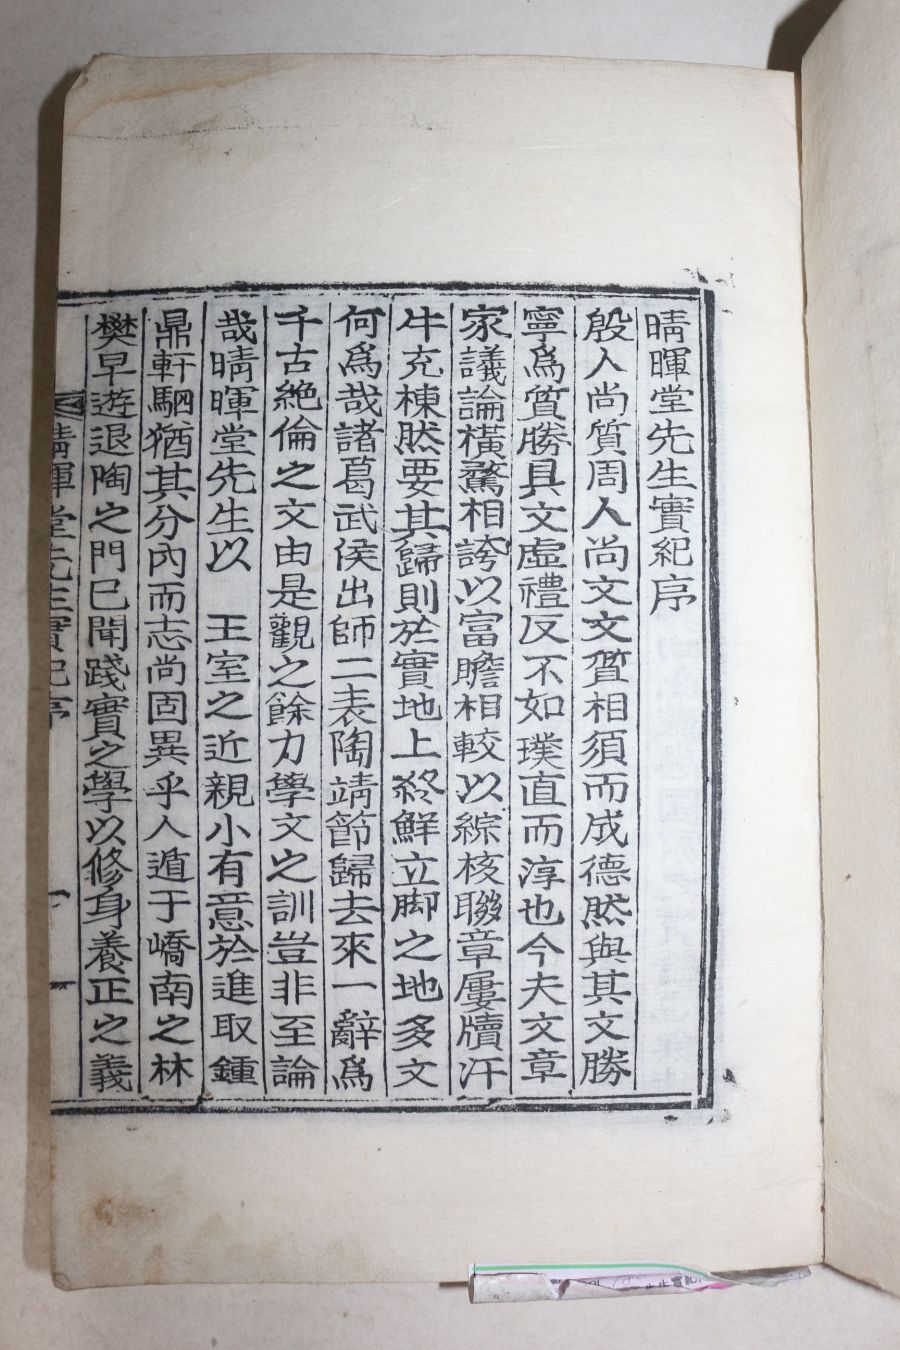 晴暉堂先生實紀序
殷人尚質周人尚文文質相須而成德然與其文勝
寧爲質勝具文虛禮反不如璞直而淳也今夫文章
家議論橫騖相誇以富贍相較以綜核聯章屢牘汗
牛充棟然要其歸則於實地上終鮮立脚之地多文
何爲哉諸葛武侯出師二表陶靖節歸去來一辭爲
千古絶倫之文由是觀之餘力學文之訓豈非至論
哉晴暉堂先生以 王室之近親小有意於進取鍾
鼎軒駟猶其分內而志尚固異乎人遁于嶠南之林
樊早遊退陶之門已聞踐實之學以修身養正之義
晴暉堂先生實紀序
一